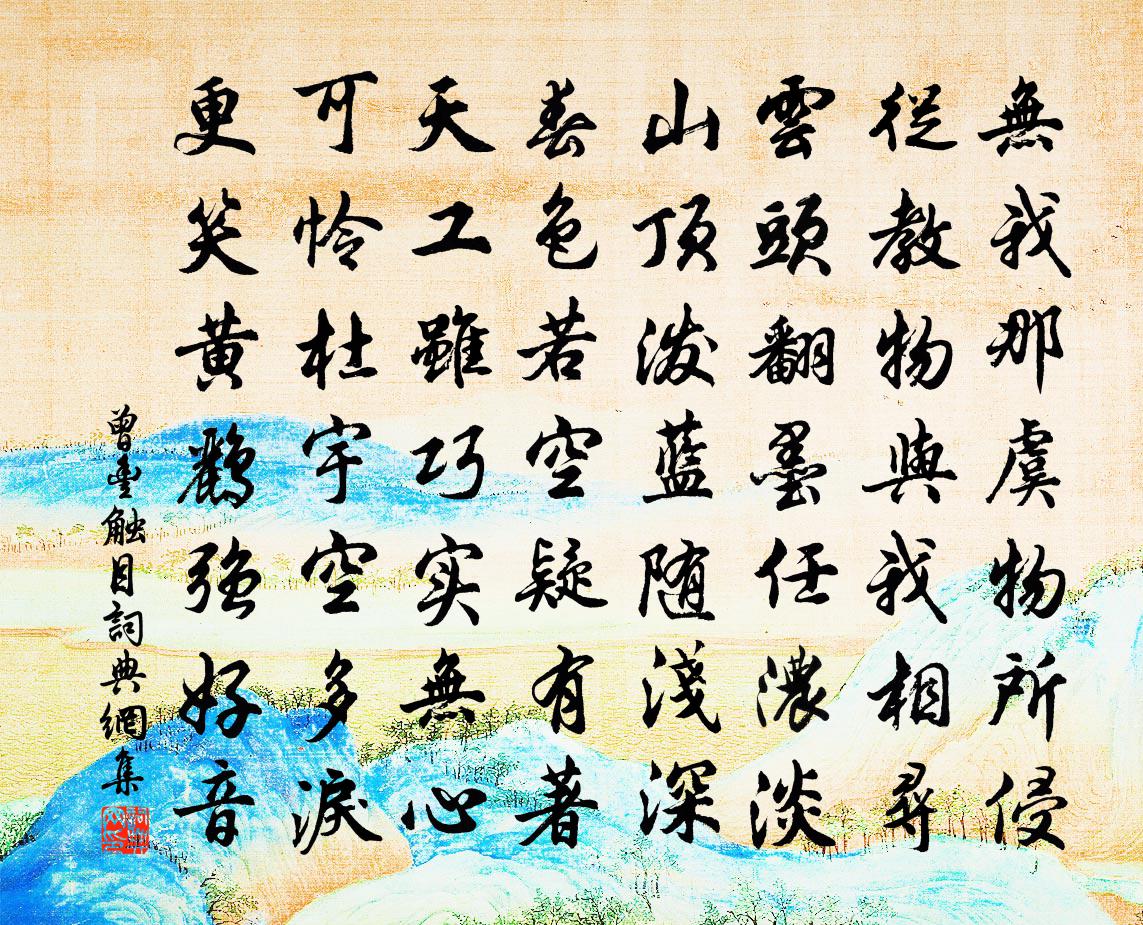 無我那虞物所侵
從教物與我相尋
雲頭翻墨任濃淡
山頂潑藍随淺深
春色若空疑有著
天工雖巧实無心
可怜杜宇空多淚
更笑黄鸝強好音
曾豊触目詞典網集